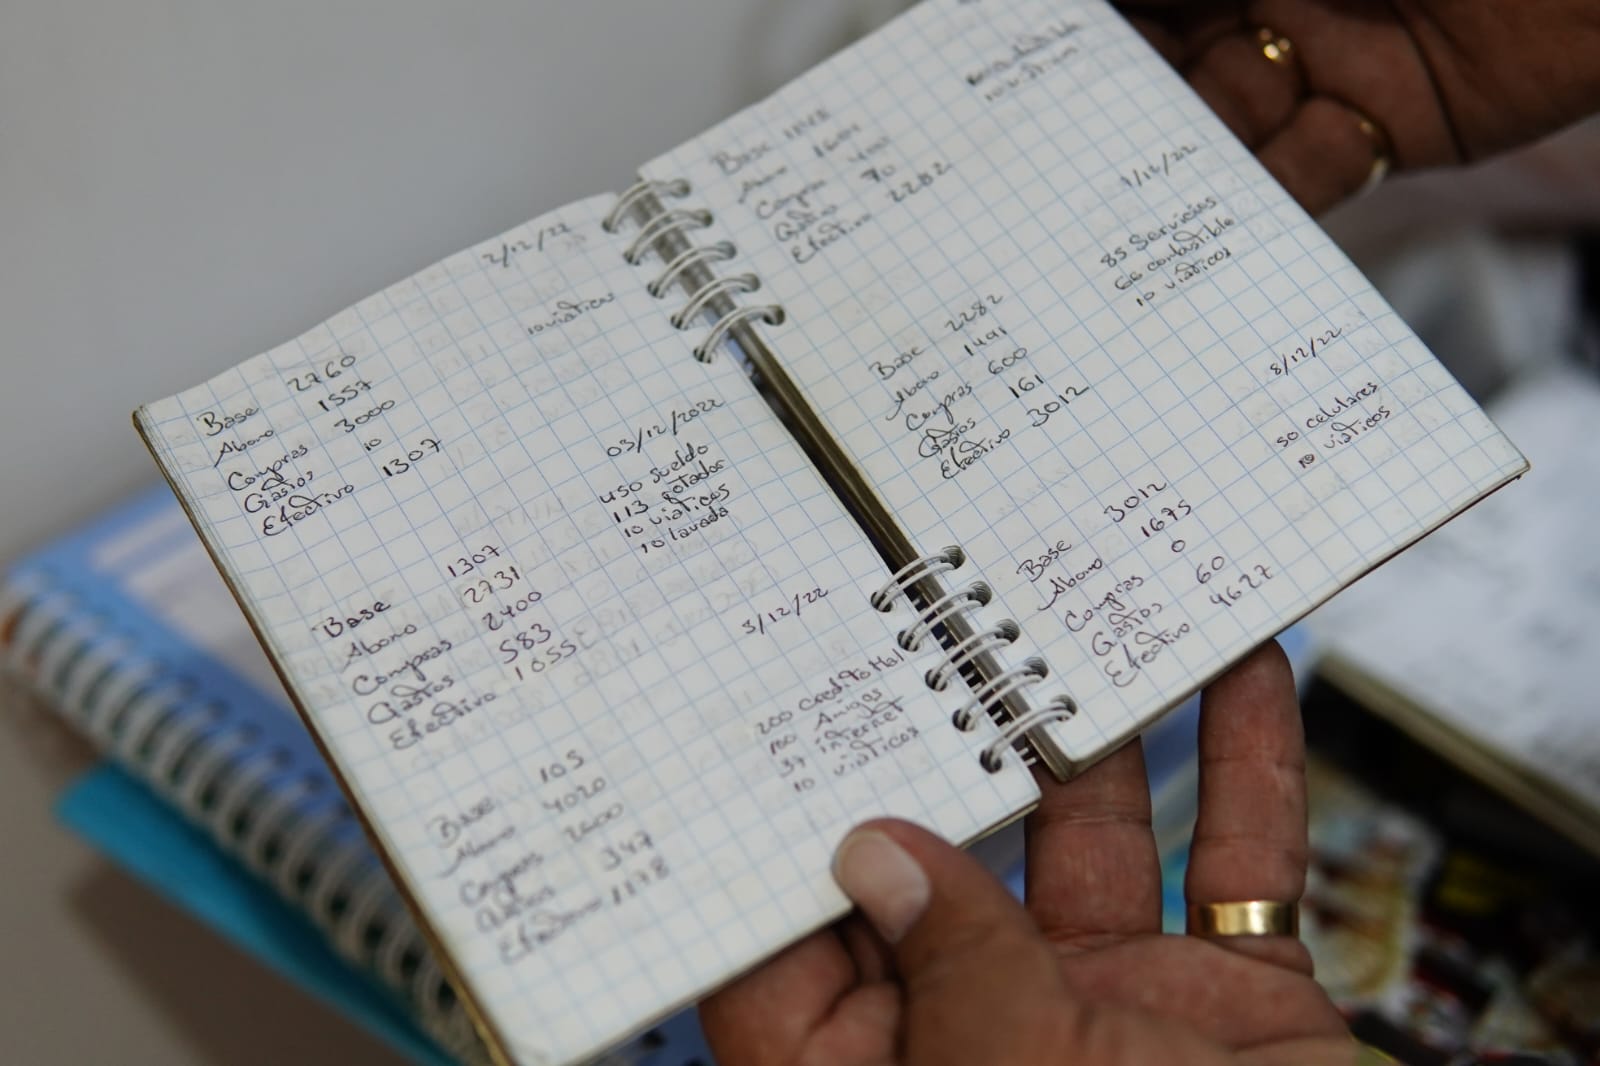 2/12/22
10 viaticos
Base 2760
Abono 1557
Compras 3000
Gastos 10
Efectivo 1307
03/12/2022
450 sueldo
113 gotados
10 viaticos
10 lavada
Base 1307
Abono 2731
Compras 2400
Gastos 583
Efectivo 1055
5/12/22
200 Credito Mal
100 Amigos
37 internet
10 viaticos
Base 105
Abono 4020
Compras 2600
Gastos 347
Efectivo 1178
10 viaticos
Base 1178
Abono 1601
Compras
Gastos 70
Efectivo 2282
7/12/22
85 Servicios
66 combustible
10 viaticos
Base 2282
Abono 1491
Compras 600
Gastos 161
Efectivo 3012
8/12/22
50 celulares
10 viaticos
Base 3012
Abono 1675
Compras 0
Gastos 60
Efectivo 4627